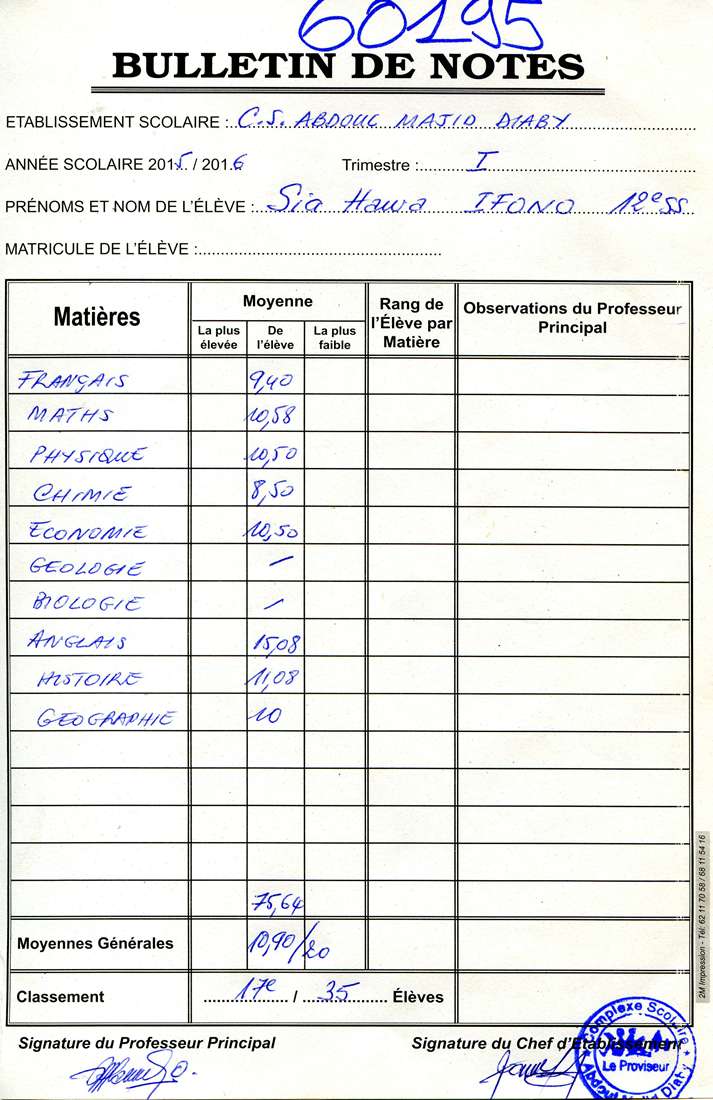 60195
BULLETIN DE NOTES
ETABLISSEMENT SCOLAIRE : C.S. ABDOUL MAJID DIABY
ANNÉE SCOLAIRE 2015 / 2016 Trimestre : I
PRÉNOMS ET NOM DE L'ÉLÈVE : Sia Hawa IFONO 12e SS
MATRICULE DE L'ÉLÈVE :
Matières Moyenne Rang de l'Élève par Matière Observations du Professeur Principal
La plus élevée De l'élève La plus faible
FRANÇAIS 9,40
MATHS 10,58
PHYSIQUE 10,50
CHIMIE 8,50
ECONOMIE 10,50
GEOLOGIE –
BIOLOGIE –
ANGLAIS 15,08
HISTOIRE 11,08
GEOGRAPHIE 10
75,64
Moyennes Générales 10,90/20
Classement 17e / 35 Élèves
Signature du Professeur Principal Signature du Chef d'Etablissement
Complexe Scolaire
Le Proviseur
Abdoul Majid Diaby
2M Impression - Tél: 62 11 70 58 / 68 11 54 16